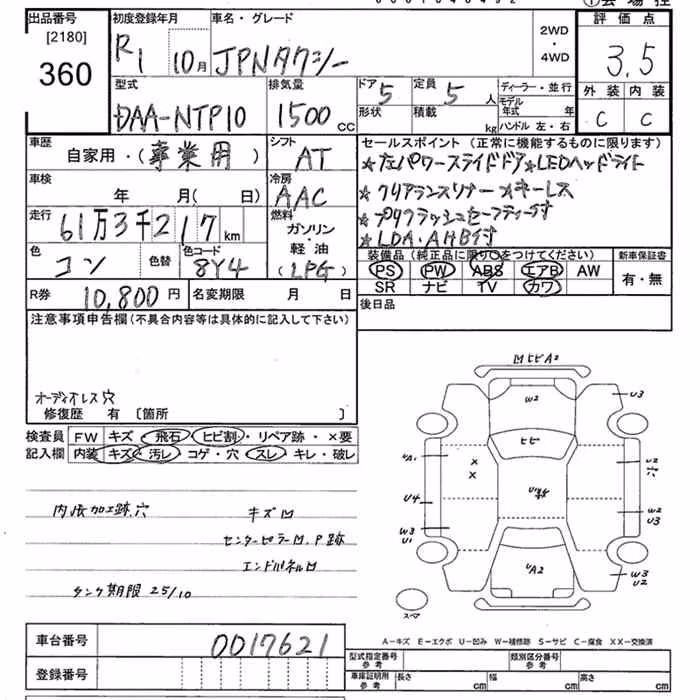 ①会場控
出品番号
[2180]
360
初度登録年月
R1 10月
車名・グレード
JPNタクシー
2WD
・
4WD
評価点
3.5
型式
DAA-NTP10
排気量
1500 CC
ドア 5
定員 5 人
形状
積載 kg
ディーラー・並行
モデル年式 年
ハンドル 左・右
外装 内装
C C
車歴
自家用・(事業用)
シフト
AT
車検
年 月( 日)
冷房
AAC
走行
61万3千217 km
燃料
ガソリン
・
軽油
(LPG)
色
コン
色替
色コード
8Y4
R券 10,800 円
名変期限 月 日
セールスポイント (正常に機能するものに限ります)
★左パワースライドドア★LEDヘッドライト
★クリアランスソナー
★プリクラッシュセーフティー付
★LDA・AHB付
装備品 (純正品に限り○をつけてください)
PS PW ABS エアB AW
SR ナビ TV カワ
新車保証書
有・無
後日品
注意事項申告欄(不具合内容等は具体的に記入して下さい)
オーディオレス穴
修復歴 有 〔箇所 〕
検査員
記入欄
FW キズ・飛石・ヒビ割・リペア跡・×要
内装 キズ・汚レ・コゲ・穴・スレ・キレ・破レ
内張加工跡.穴 キズ凹
センターピラー凹.P跡
エンドパネル凹
タンク期限 25/10
車台番号 0017621
登録番号
凹ヒビA2
W2
U3
ヒビ
UA1
U2
穴
U4
W2
U3
W3
U1
UA2
W3
U2
スペア
A-キズ E-エクボ U-凹み W-補修跡 S-サビ C-腐食 XX-交換済
型式指定番号
参考
類別区分番号
参考
車庫証明用
参考
長さ cm
幅 cm
高さ cm